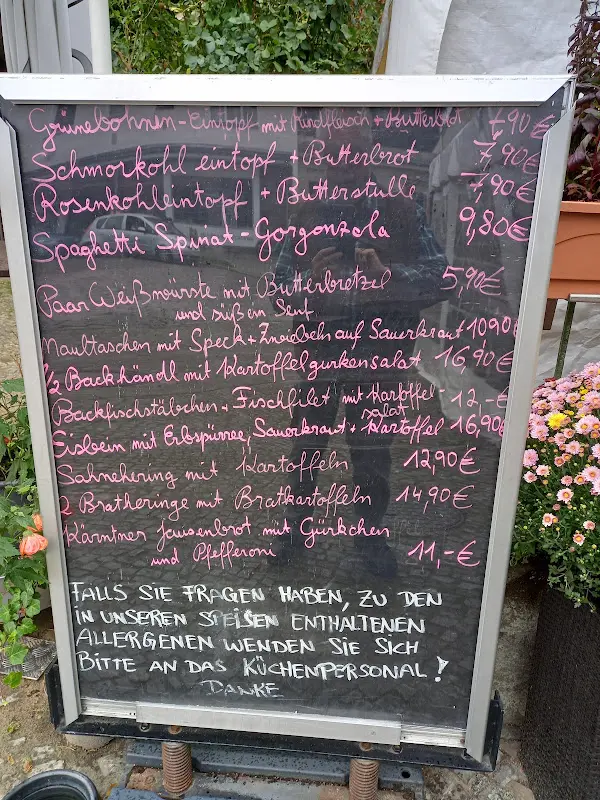 Grünebohnen-Eintopf mit Rindfleisch + Butterbrot 7,90 €
Schmorkohl eintopf + Butterbrot 7,90 €
Rosenkohleintopf + Butterstulle 7,90 €
Spaghetti Spinat-Gorgonzola 9,80 €
Paar Weißwürste mit Butterbretzel 5,90 €
und süßem Senf
Maultaschen mit Speck + Zwiebeln auf Sauerkraut 10,90
1/2 Backhändl mit Kartoffelgurkensalat 16,90 €
Backfischstäbchen + Fischfilet mit Kartoffel- 12,- €
salat
Eisbein mit Erbspürree, Sauerkraut + Kartoffel 16,90 €
Sahnehering mit Kartoffeln 12,90 €
2 Bratheringe mit Bratkartoffeln 14,90 €
Kärntner Jausenbrot mit Gürkchen
und Pfefferoni 11,- €
FALLS SIE FRAGEN HABEN, ZU DEN
IN UNSEREN SPEISEN ENTHALTENEN
ALLERGENEN WENDEN SIE SICH
BITTE AN DAS KÜCHENPERSONAL!
DANKE